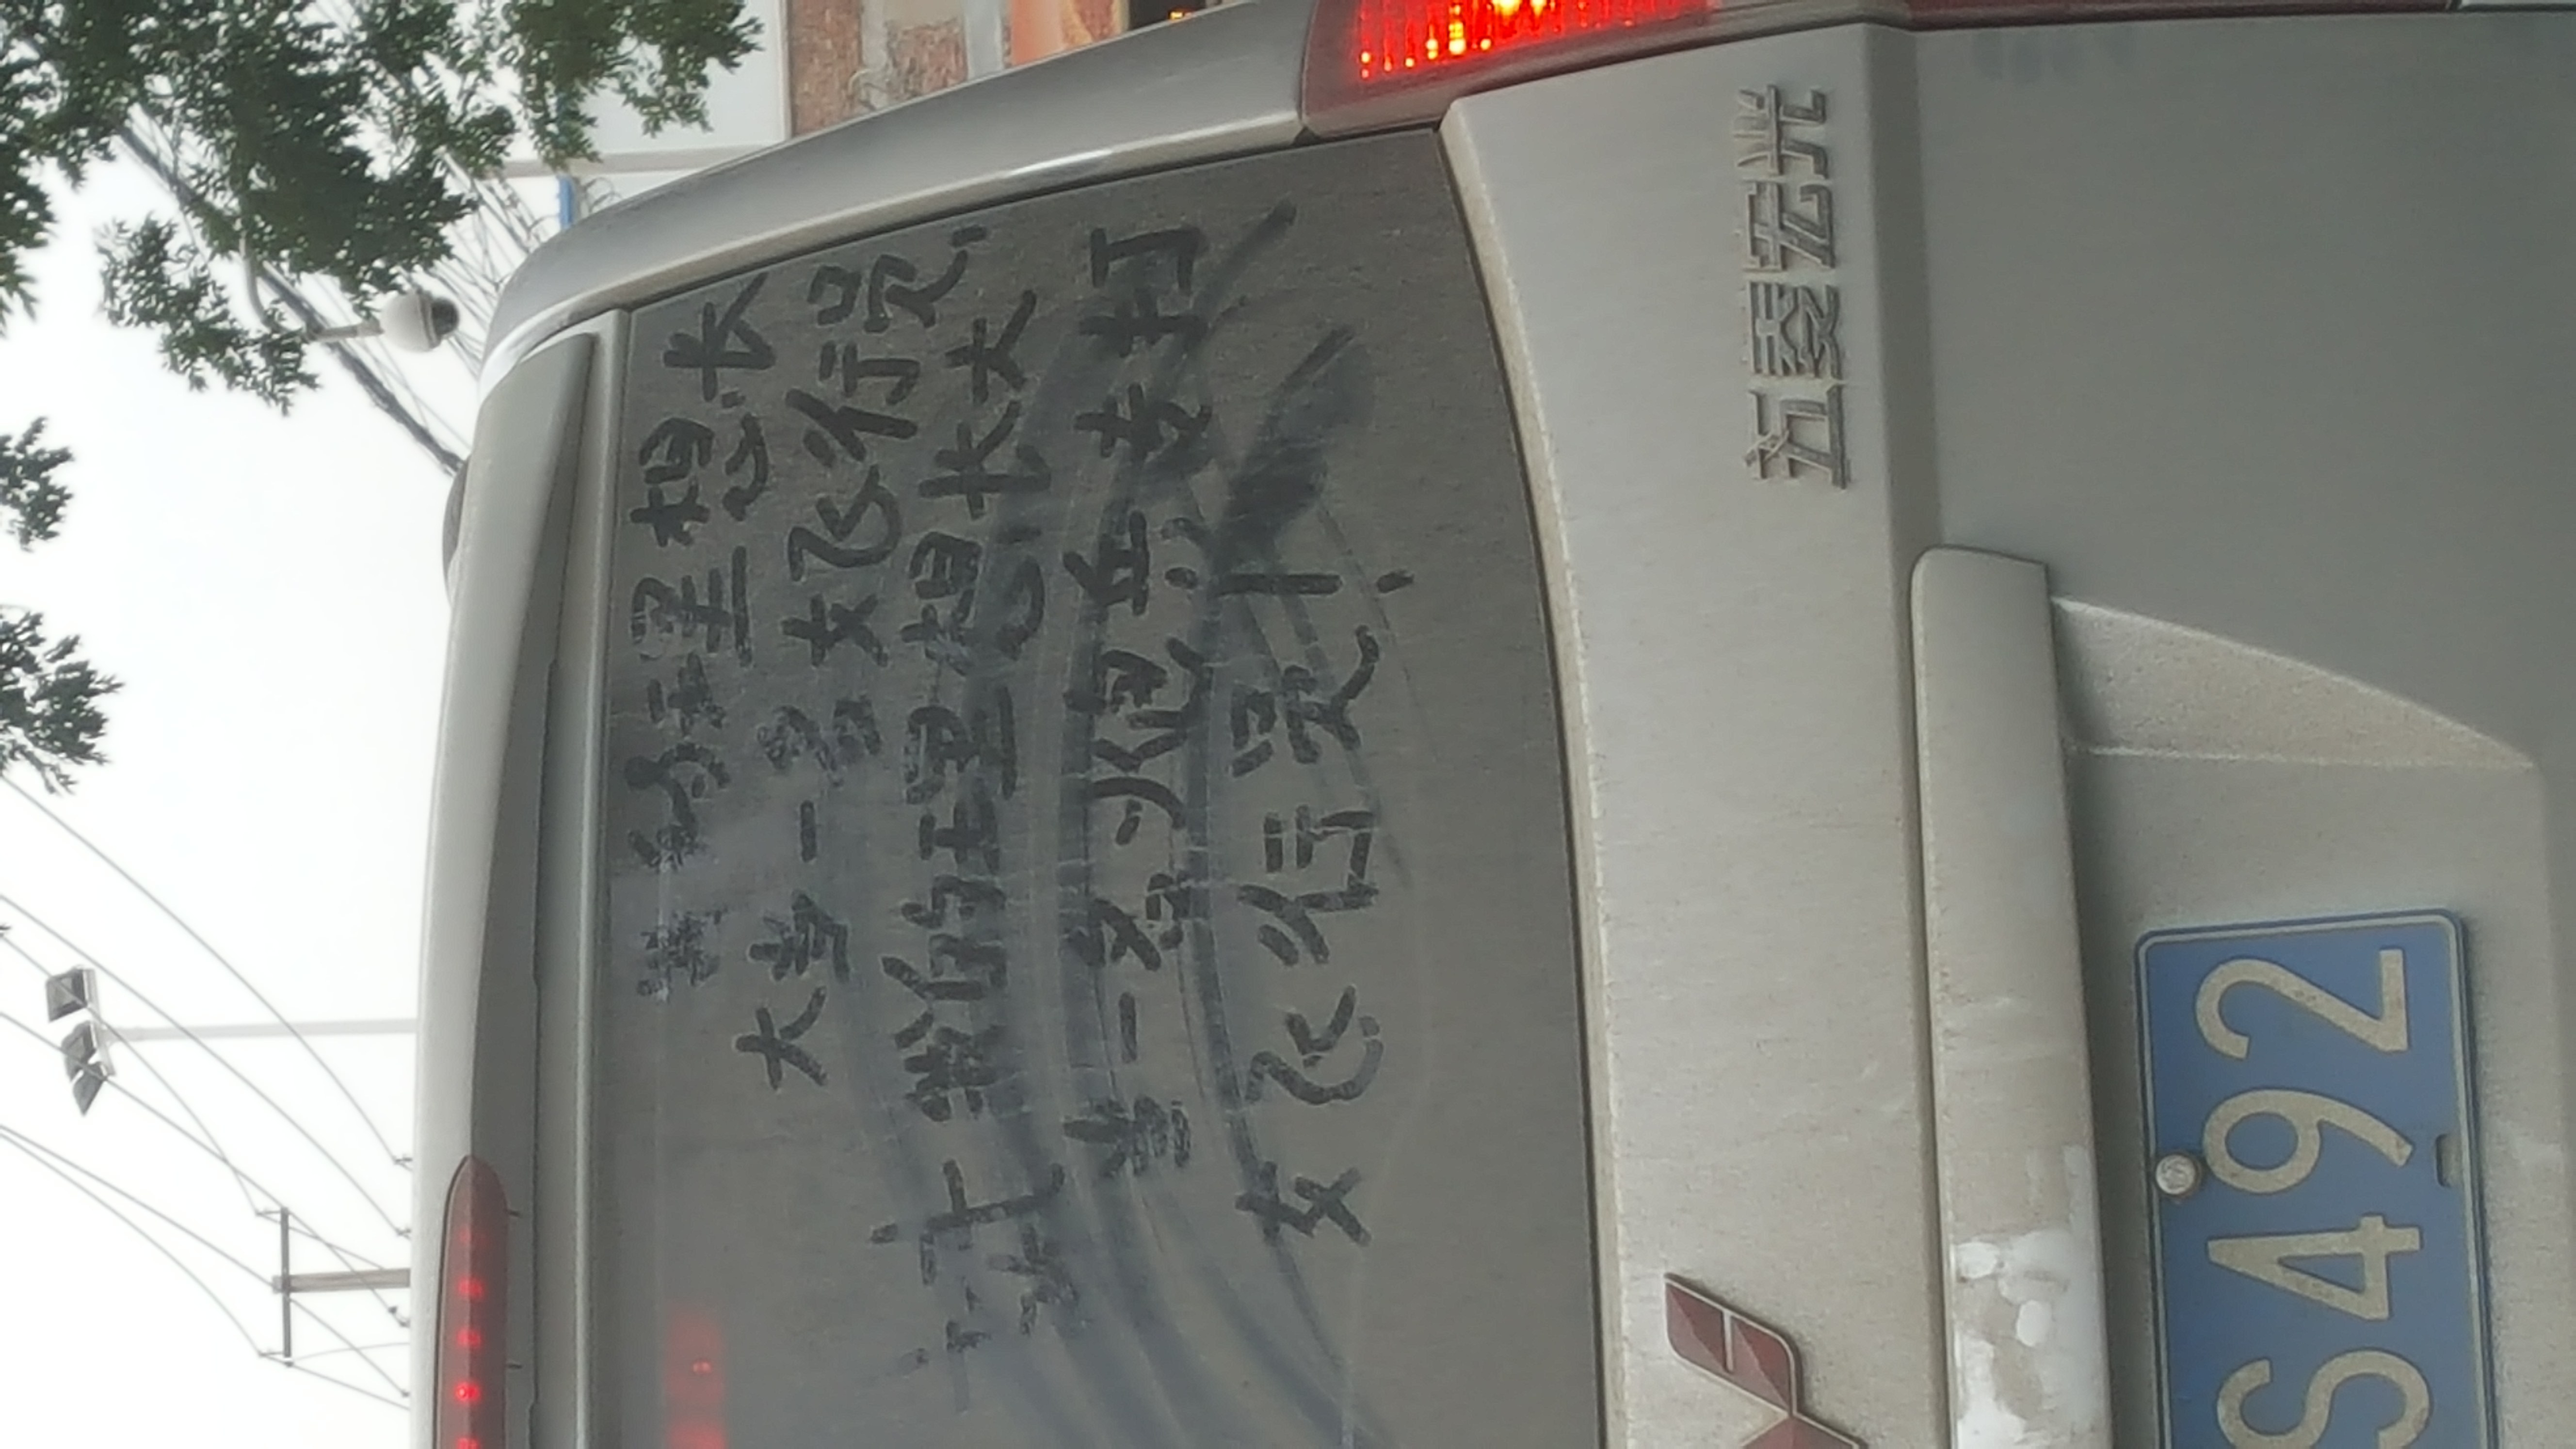 我的理想长
大当一名女飞行员,
试我的理想长大
当一名炮兵专打
女飞行员!
五菱宏光
S492